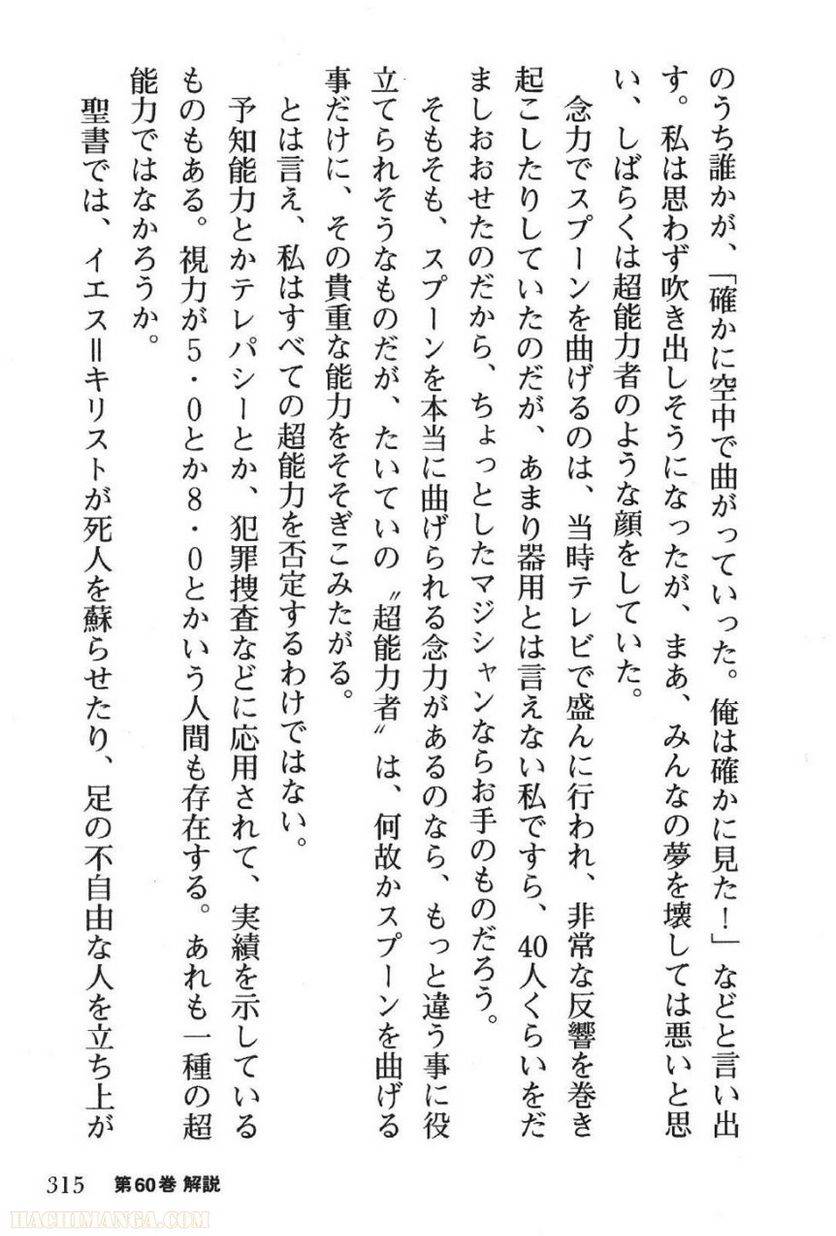 のうち誰かが、「確かに空中で曲がっていった。俺は確かに見た！」などと言い出
す。私は思わず吹き出しそうになったが、まあ、みんなの夢を壊しては悪いと思
い、しばらくは超能力者のような顔をしていた。
念力でスプーンを曲げるのは、当時テレビで盛んに行われ、非常な反響を巻き
起こしたりしていたのだが、あまり器用とは言えない私ですら、40人くらいをだ
ましおおせたのだから、ちょっとしたマジシャンならお手のものだろう。
そもそも、スプーンを本当に曲げられる念力があるのなら、もっと違う事に役
立てられそうなものだが、たいていの〝超能力者〟は、何故かスプーンを曲げる
事だけに、その貴重な能力をそそぎこみたがる。
とは言え、私はすべての超能力を否定するわけではない。
予知能力とかテレパシーとか、犯罪捜査などに応用されて、実績を示している
ものもある。視力が5・0とか8・0とかいう人間も存在する。あれも一種の超
能力ではなかろうか。
聖書では、イエス＝キリストが死人を蘇らせたり、足の不自由な人を立ち上が
315 第60巻 解説
HACHIMANGA.COM